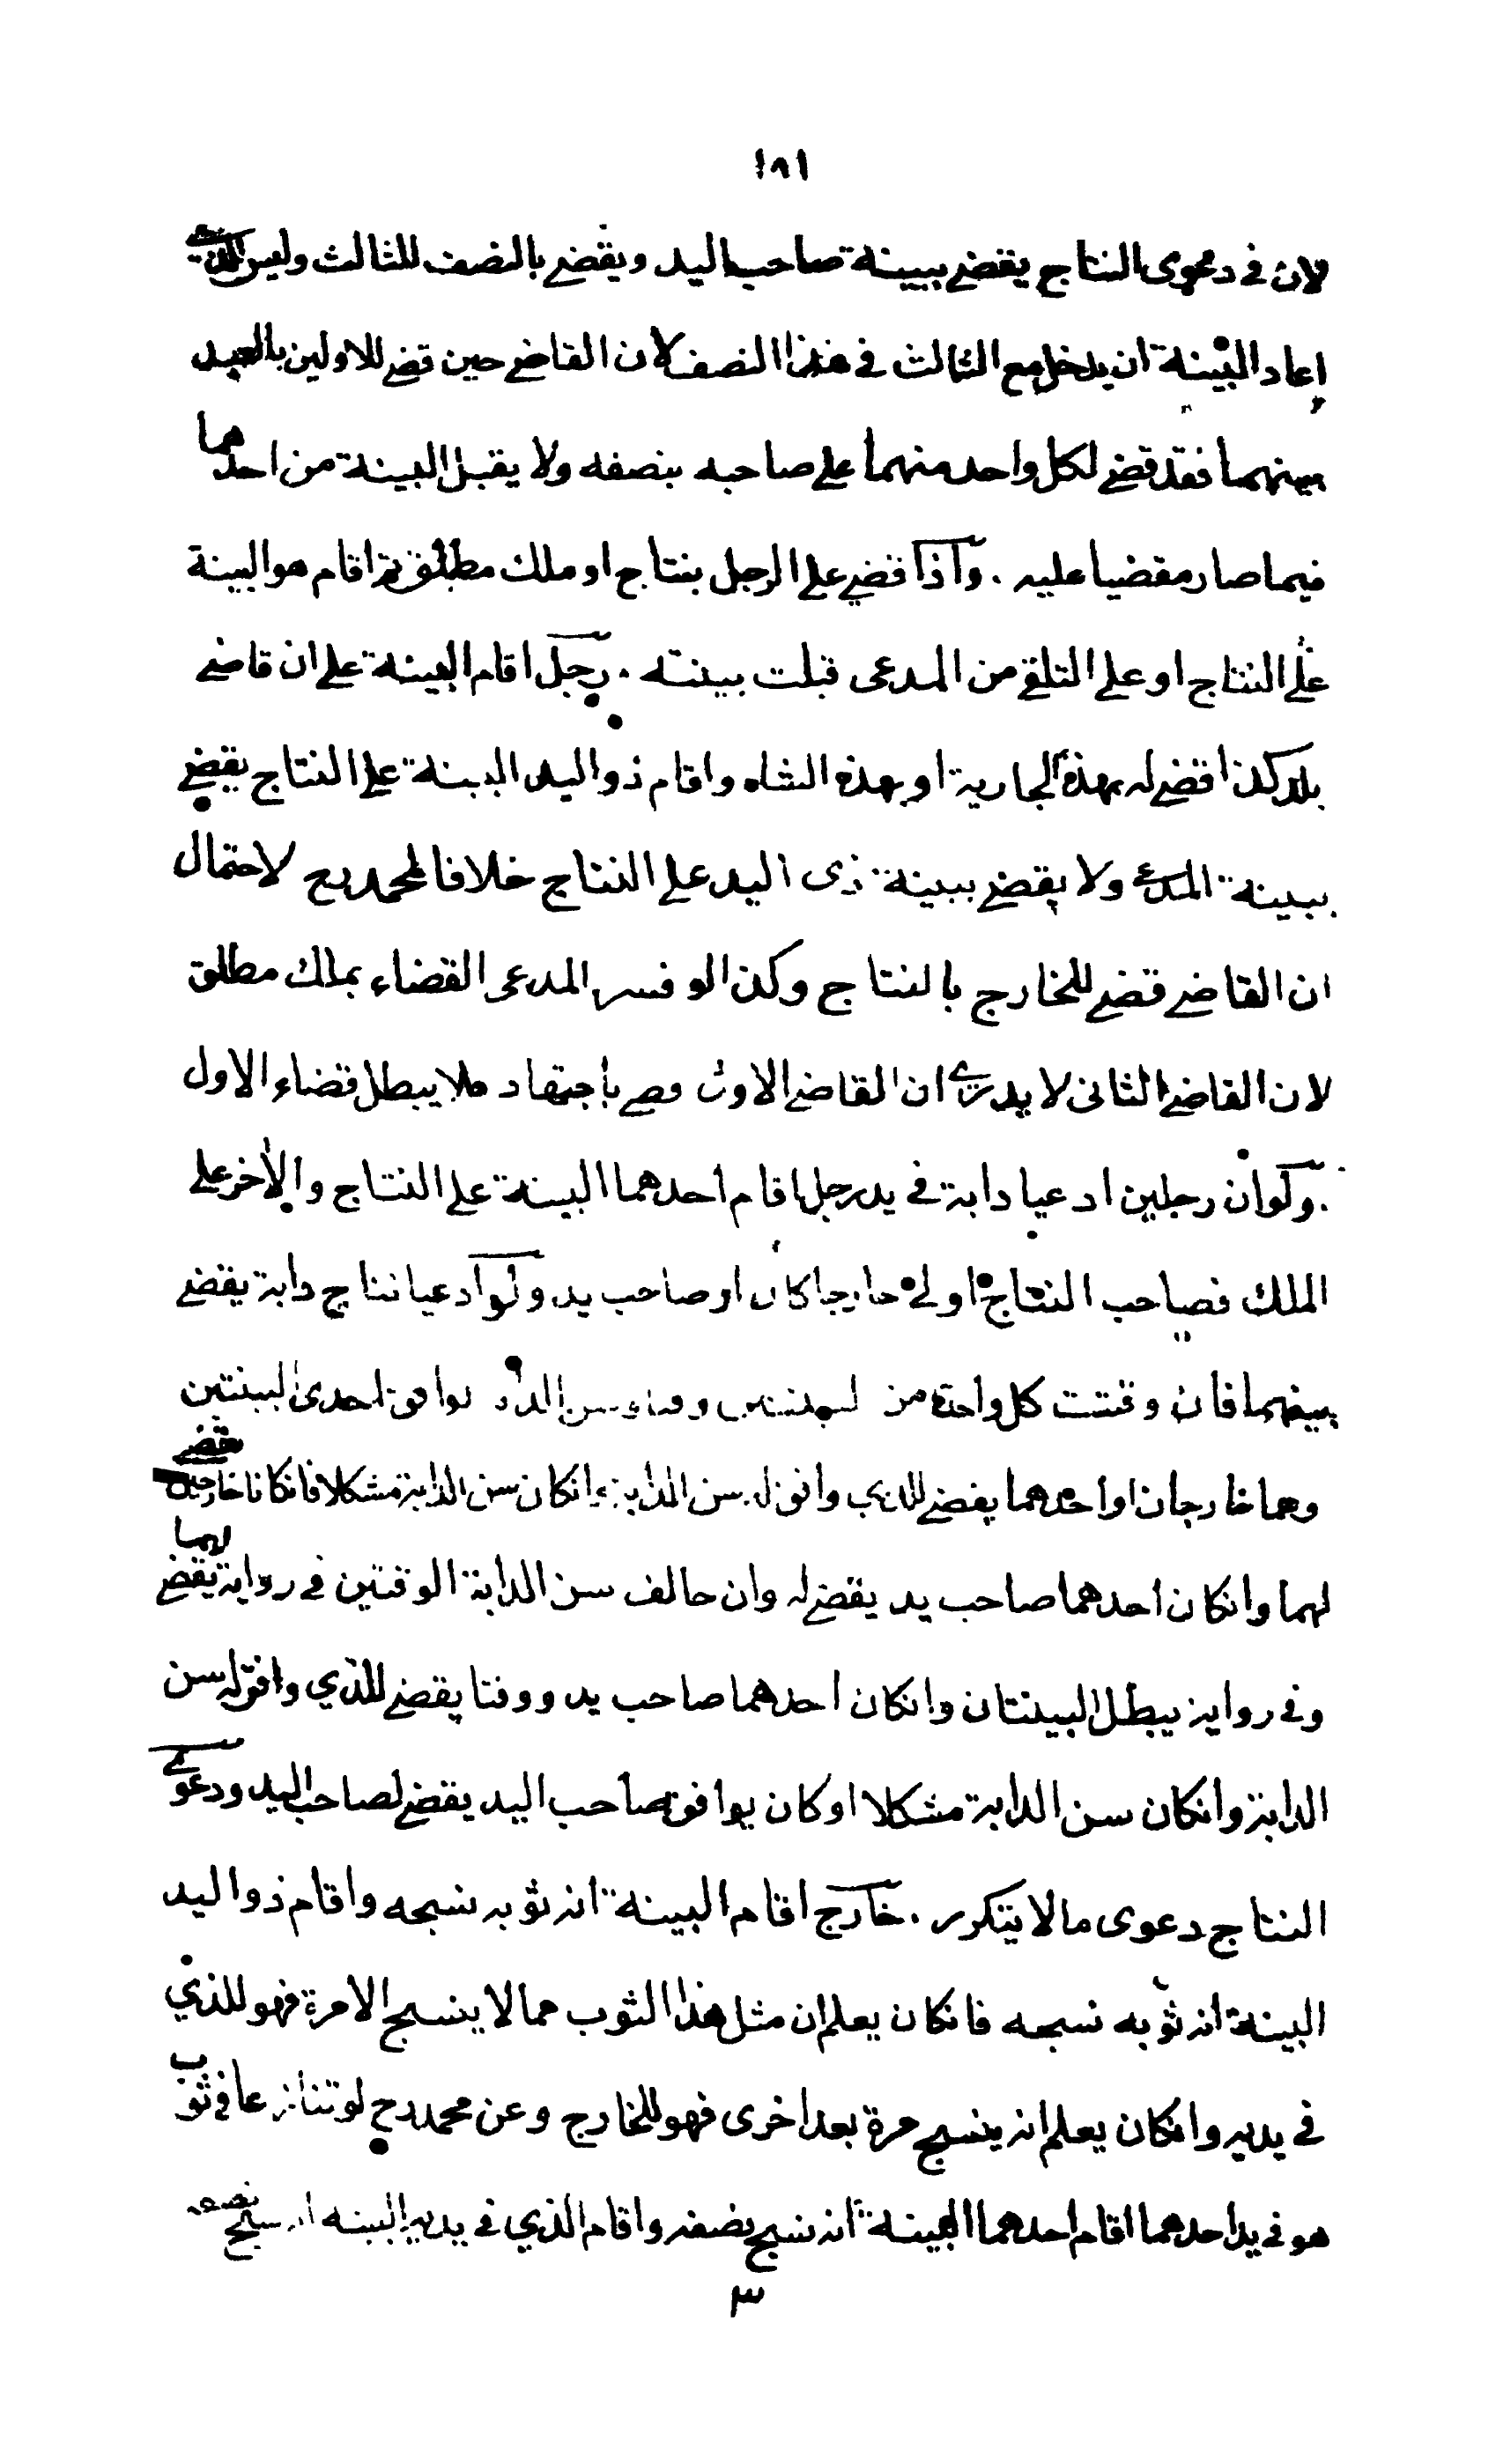 ١٨١
لان فى دعوى النتاج يقضى ببينة صاحب اليد ويقضى بالنصف للثالث وليس للذى
اعاد البينة ان يدخل مع الثالث فى هذا النصف لان القاضى حين قضى للاولين بالعبد
بينهما فقد قضى لكل واحد منهما على صاحبه بنصفه ولا يقبل البينة من احدهما
فيما صار مقضيا عليه . واذا قضى على الرجل بنتاج او ملك مطلق ثم اقام هو البينة
على النتاج او على التلقى من المدعى قبلت بينته . رجل اقام البينة على ان قاضى
بلد كذا قضى له بهذه الجارية او بهذه الشاه واقام ذو اليد البينة على النتاج يقضى
ببينة المدعى ولا يقضى ببينة ذى اليد على النتاج خلافا لمحمد رح لاحتمال
ان القاضى قضى للخارج بالنتاج وكذا لو فسر المدعى القضاء بملك مطلق
لان القاضى الثانى لا يدرى ان القاضى الاول قضى باجتهاد فلا يبطل قضاء الاول
. ولو ان رجلين ادعيا دابة فى يد رجل اقام احدهما البينة على النتاج والاخر على
الملك فصاحب النتاج اولى خارجا كان او صاحب يد ولو ادعيا نتاج دابة يقضى
بينهما فان وقتت كل واحدة من البينتين وقتا وسن الدابة توافق احدى البينتين
وهما خارجان او احدهما يقضى للذى وافق له سن الدابة وانكان سن الدابة مشكلا فانكانا خارجين يقضى
لهما وانكان احدهما صاحب يد يقضى له وان خالف سن الدابة الوقتين فى رواية يقضى لهما
وفى رواية يبطل البينتان وانكان احدهما صاحب يد ووقتا يقضى للذي وافق له سن
الدابة وانكان سن الدابة مشكلا اوكان يوافق صاحب اليد يقضى لصاحب اليد ودعوى
النتاج دعوى مالا يتكرر . خارج اقام البينة انه ثوبه نسجه واقام ذو اليد
البينة انه ثوبه نسجه فانكان يعلم ان مثل هذا الثوب مما لا ينسج الا مرة فهو للذي
فى يديه وانكان يعلم انه ينسج مرة بعد اخرى فهو للخارج وعن محمد رح لو تنازعا فى ثوب
هو فى يد احدهما اقام احدهما البينة انه نسج نصفه واقام الذي فى يديه البينه انه نسج نصفه
٣